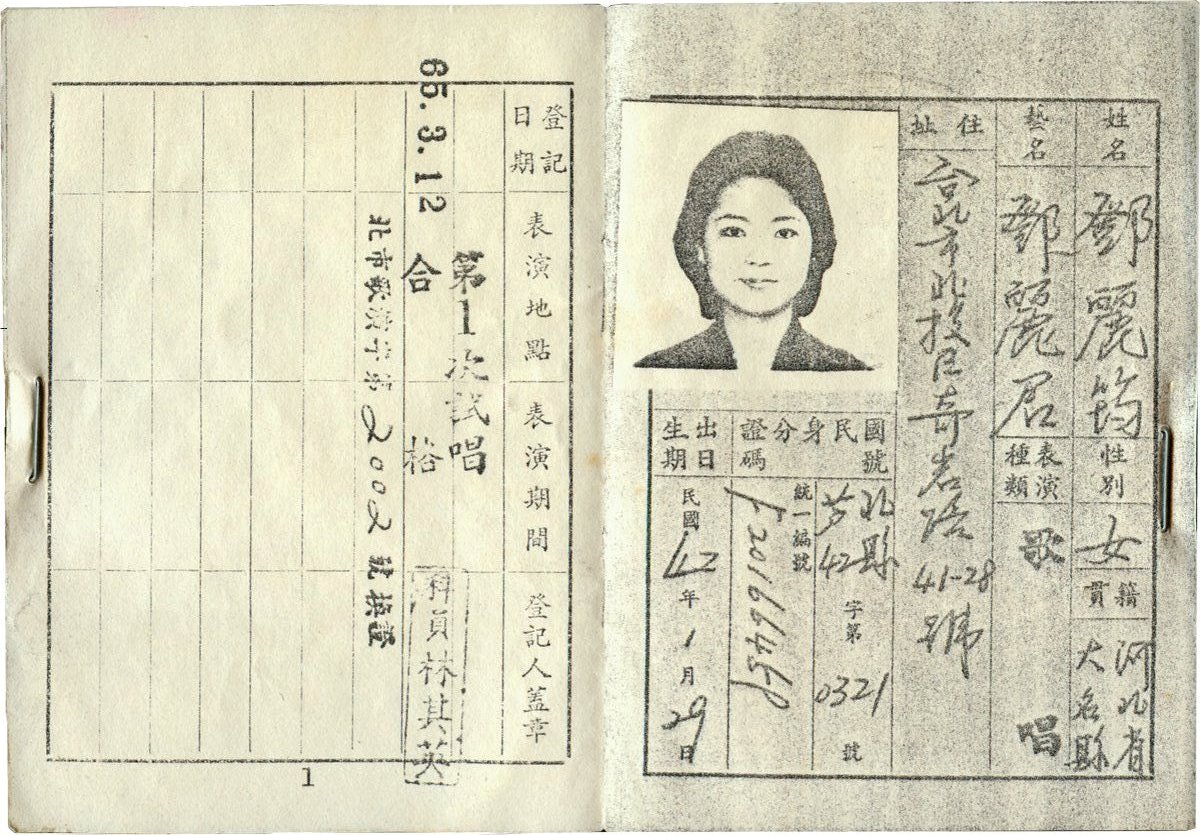 姓名
鄧麗筠
性別
女
籍貫
河北省
大名縣
藝名
鄧麗君
表演種類
歌唱
住址
台北市北投區奇岩路
41-28
號
國民身分證號碼
北縣
42
字第
0321
號
統一編號
出生日期
民國
42
年
1
月
29
日
登記日期
表演地點
表演期間
登記人蓋章
第1次試唱
65.3.12
合
格
科員林其英
2002
號換證
1